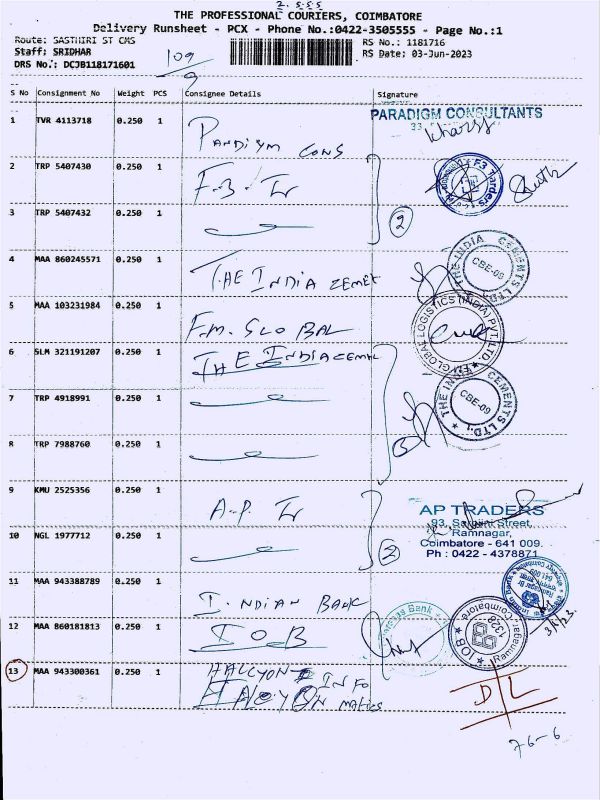 2.555
THE PROFESSIONAL COURIERS, COIMBATORE
Delivery Runsheet - PCX - Phone No.:0422-3505555 - Page No.:1
Route: SASTHIRI ST CMS
Staff: SRIDHAR
DRS No.: DCJB118171601
109/9
RS No.: 1181716
RS Date: 03-Jun-2023
S No Consignment No Weight PCS Consignee Details Signature
1 TVR 4113718 0.250 1 PANDIGM CONS
PARADIGM CONSULTANTS
33
2 TRP 5407430 0.250 1 F.3. Tr
F3 Traders
3 TRP 5407432 0.250 1
2
4 MAA 860245571 0.250 1 THE INDIA ZEMET
THE INDIA CEMENTS LTD.
CBE-09
5 MAA 103231984 0.250 1 F.M. GLOBAL
FM GLOBAL LOGISTICS (INDIA) PVT. LTD.
6 SLM 321191207 0.250 1 THE INDIA CEMNL
7 TRP 4918991 0.250 1
THE INDIA CEMENTS LTD.
CBE-09
8 TRP 7988760 0.250 1
9 KMU 2525356 0.250 1 A.P. Tr
AP TRADERS
93, Sarojini Street,
Ramnagar,
Coimbatore - 641 009.
Ph : 0422 - 4378871
10 NGL 1977712 0.250 1
2
11 MAA 943388789 0.250 1 INDIAN BANK
3/6/23
12 MAA 860181813 0.250 1 I O B
Bank
IOB Ramnagar, Coimbatore
1328
13 MAA 943300361 0.250 1 HALCYON INFO
HALCYON MATICS
D/L
7-6-6